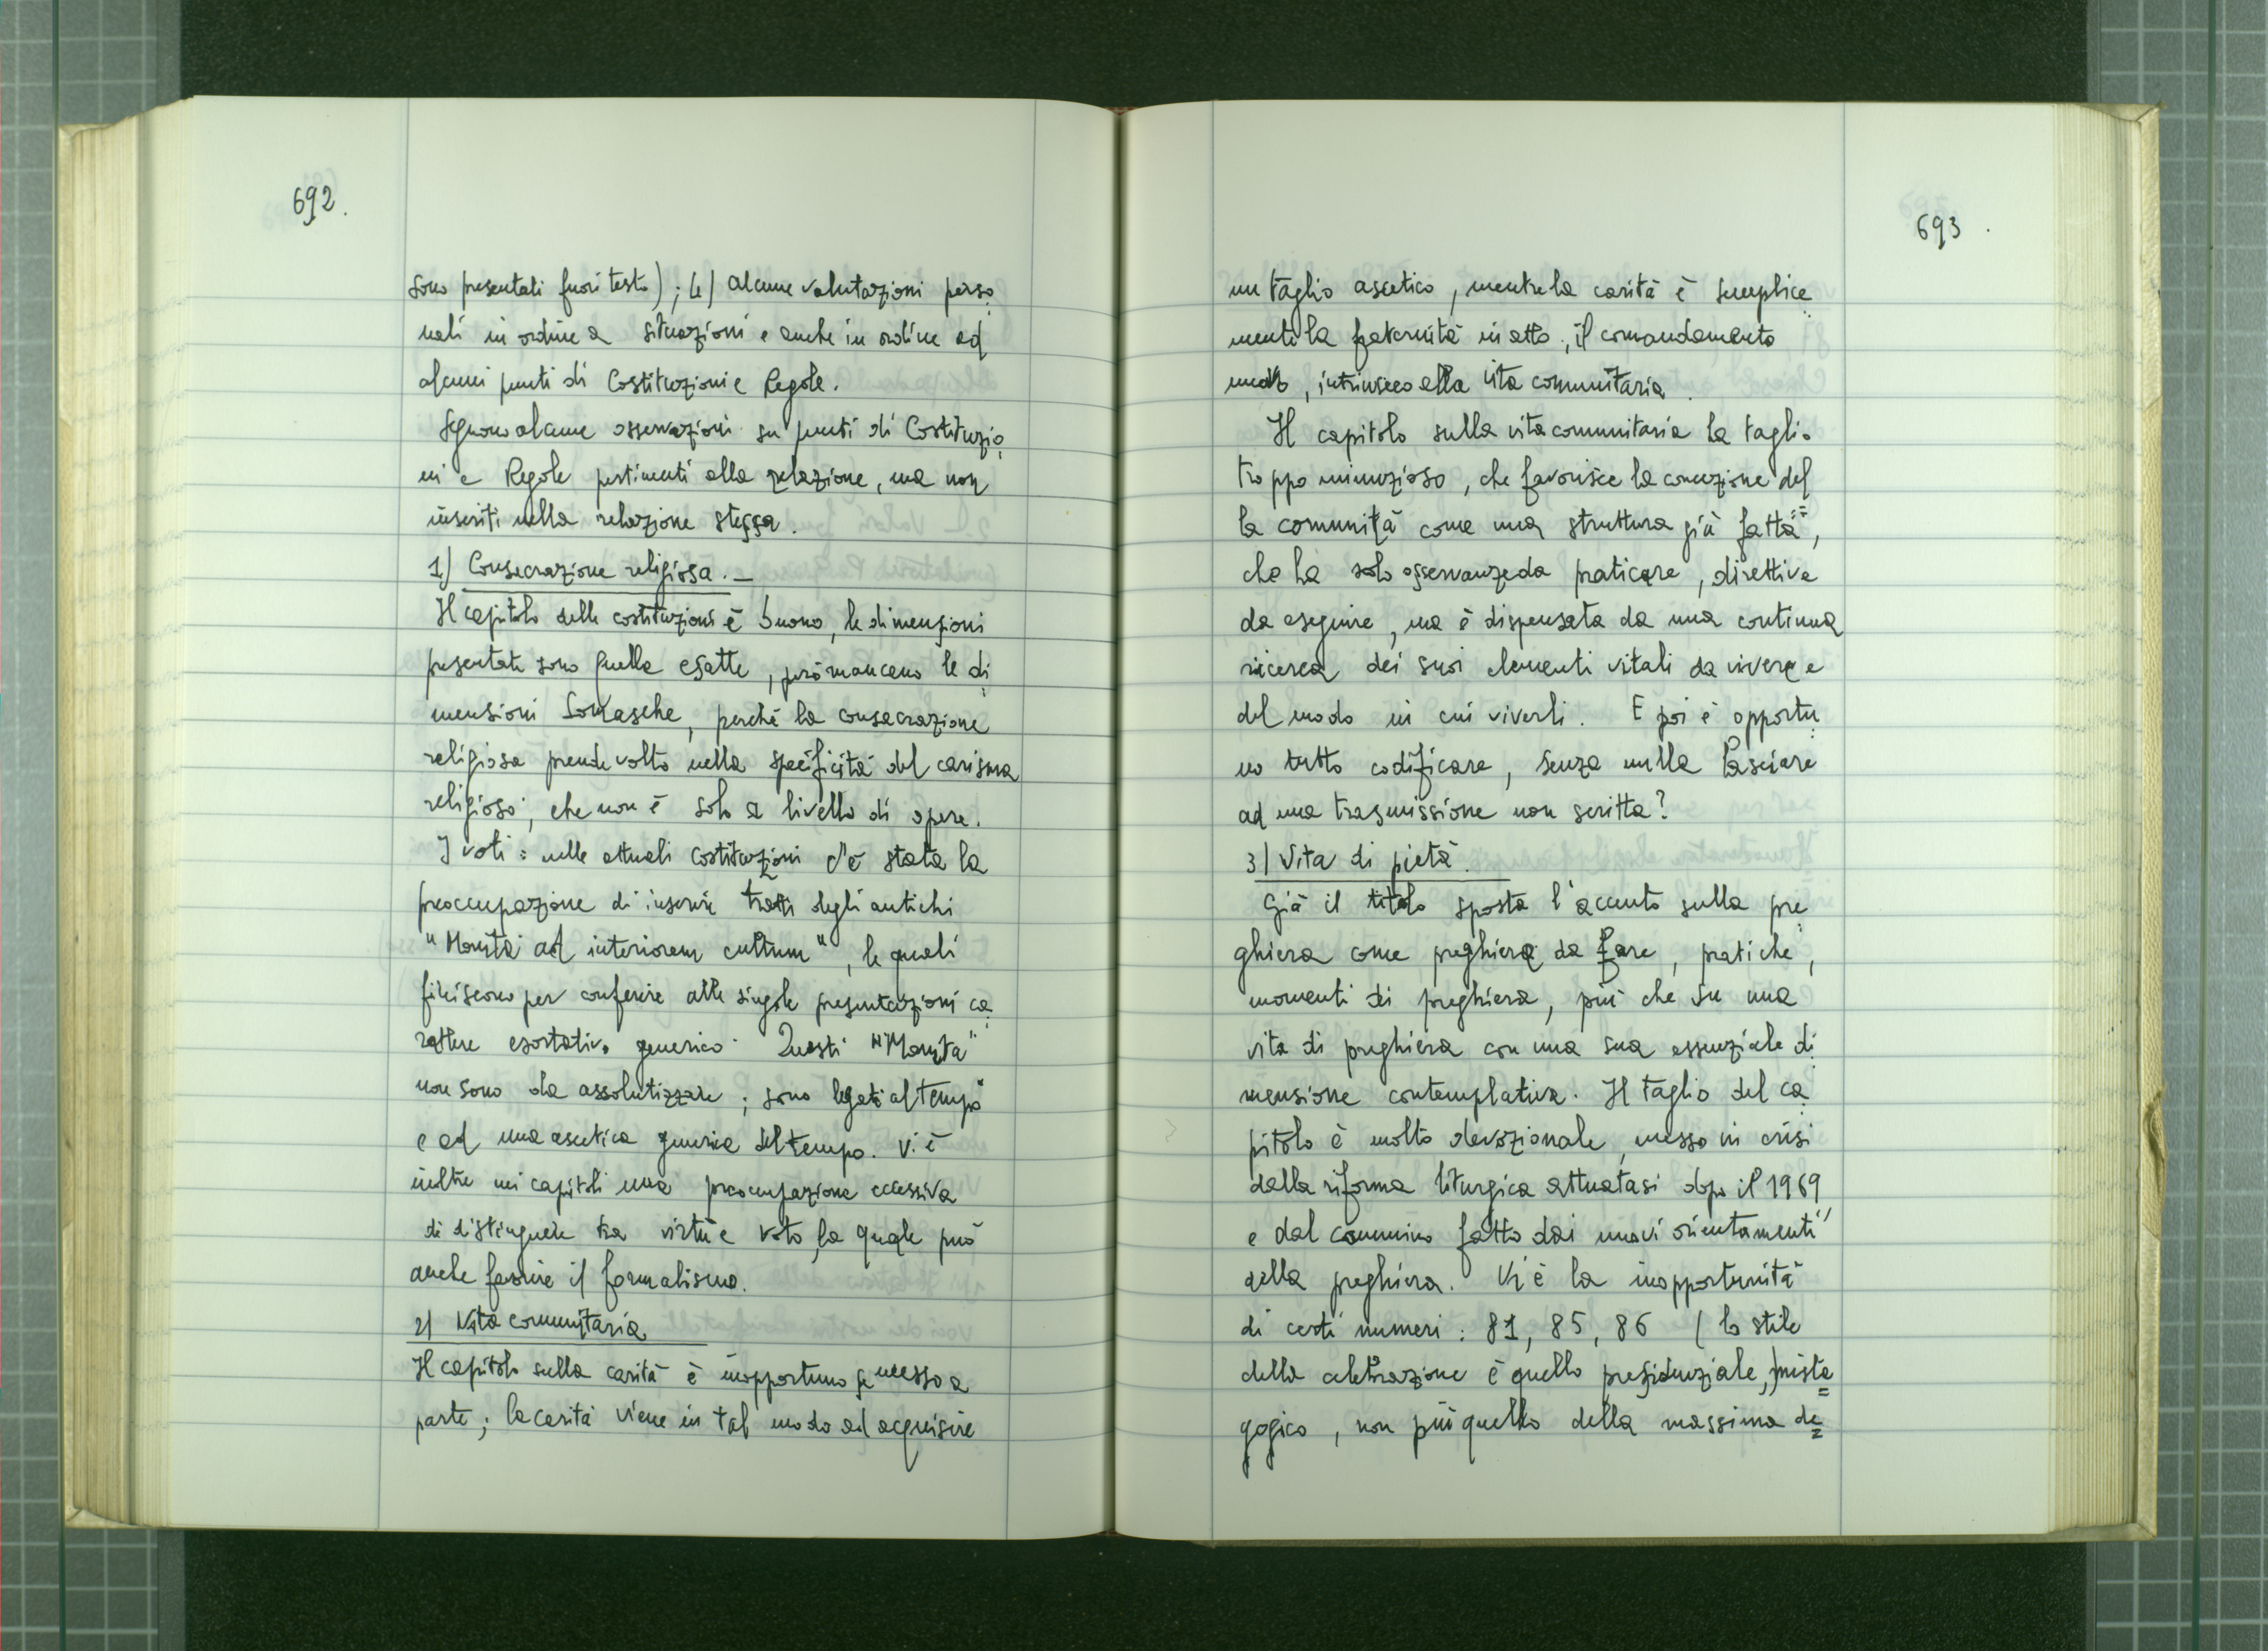 692.
sono presentati fuori testo); 4) alcune valutazioni perso
nali in ordine a situazioni e anche in ordine ad
alcuni punti di Costituzioni e Regole.
Seguono alcune osservazioni su punti di Costituzio
ni e Regole pertinenti alla relazione, ma non
inseriti nella relazione stessa.
1) Consecrazione religiosa. _
Il capitolo delle costituzioni è buono, le dimensioni
presentate sono quelle esatte, però mancano le di
mensioni Somasche, perchè la consacrazione
religiosa prende volto nella specificità del carisma
religioso; che non è solo a livello di opere.
I voti: nelle attuali costituzioni c'è stata la
preoccupazione di inserire tratti degli antichi
"Monita ad interiorem cultum", le quali
finiscono per conferire alle singole presentazioni ca
rattere esortativo generico. Questi "Monita"
non sono da assolutizzare; sono legati al tempo
e ad una ascetica generica del tempo. Vi è
inoltre nei capitoli una preoccupazione eccessiva
di distinguere tra virtù e voto, la quale può
anche favorire il formalismo.
2) Vita comunitaria
Il capitolo sulla carità è inopportuno se messo a
parte; la carità viene in tal modo ad acquisire
693.
un taglio ascetico, mentre la carità è semplice
mente la fraternità in atto, il comandamento
nuovo, intrinseco alla vita comunitaria.
Il capitolo sulla vita comunitaria ha taglio
troppo minuzioso, che favorisce la concezione del
la comunità come una struttura già fatta,
che ha solo osservanze da praticare, direttive
da eseguire, ma è dispensata da una continua
ricerca dei suoi elementi vitali da vivere e
del modo in cui viverli. E poi è opportu
no tutto codificare, senza nulla lasciare
ad una trasmissione non scritta?
3) Vita di pietà.
Già il titolo sposta l'accento sulla pre
ghiera come preghiera da fare, pratiche,
momenti di preghiera, più che su una
vita di preghiera con una sua essenziale di
mensione contemplativa. Il taglio del ca
pitolo è molto devozionale, messo in crisi
dalla riforma liturgica attuatasi dopo il 1969
e dal cammino fatto dai nuovi orientamenti
della preghiera. Vi è la inopportunità
di certi numeri: 81, 85, 86 (lo stile
della celebrazione è quello presidenziale, mista
gogico, non più quello della massima de